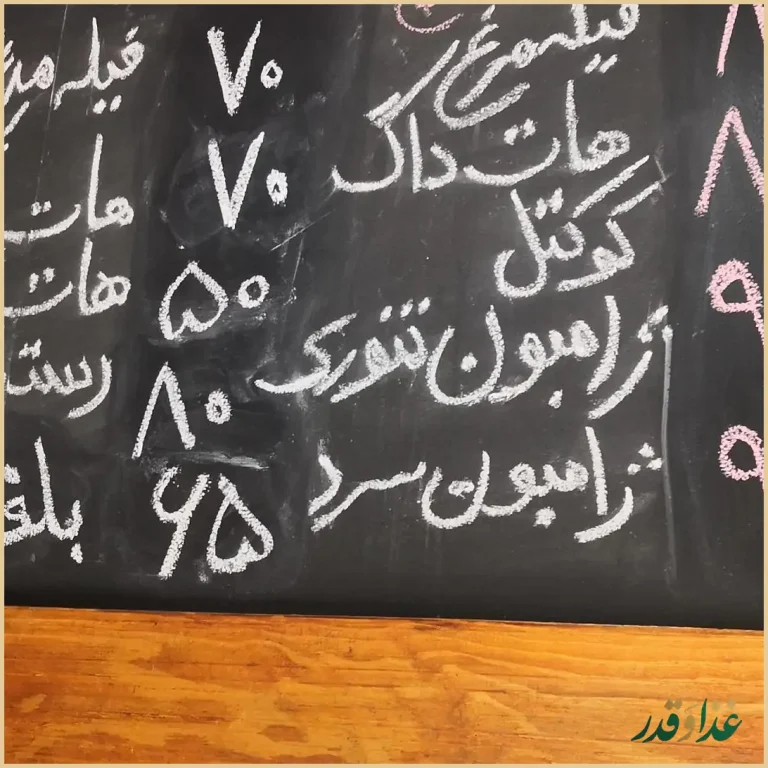 فیله مرغ ۷۰
هات داگ ۷۰
کوکتل ۵۰
ژامبون تنوری ۸۰
ژامبون سرد ۶۵
فیله
هات
هات
رست
غذا و قدر